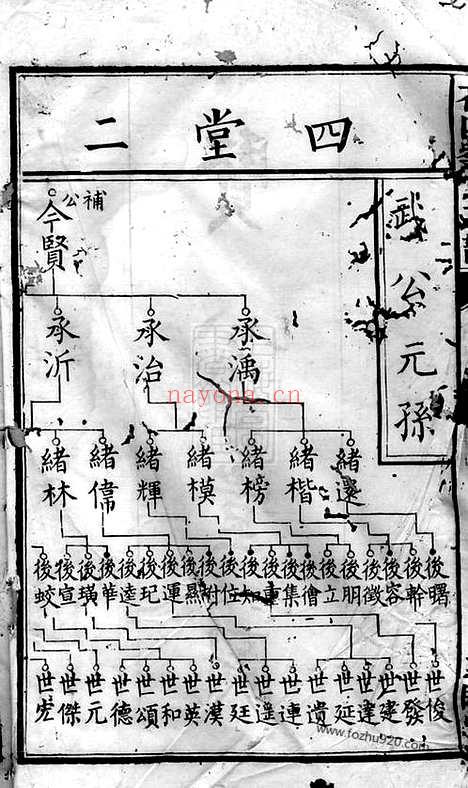 四堂二
武公元孫
補公
今賢
承禹
承治
承沂
緒遷
緒楷
緒榜
緒模
緒輝
緒偉
緒林
後曙
後幹
後容
後徵
後朋
後立
後會
後集
後重
後知
後位
後附
後熙
後運
後玘
後達
後華
後璜
後宣
後蛟
世俊
世發
世建
世達
世延
世遺
世連
世廷
世漢
世英
世和
世頌
世德
世元
世傑
nayona.cn
www.fozhu920.com